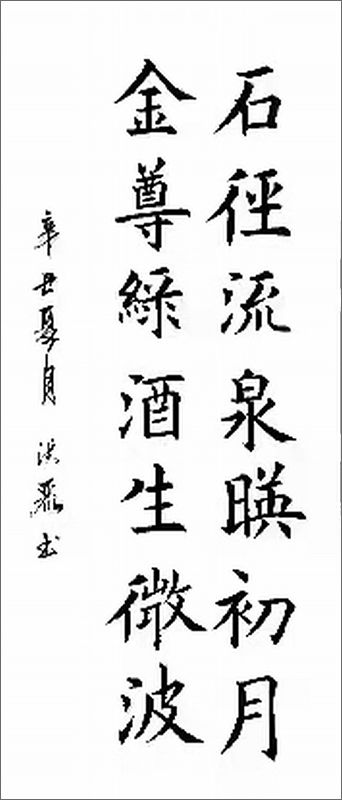 石徑流泉暎初月
金尊綠酒生微波
辛丑夏月 洪磊书